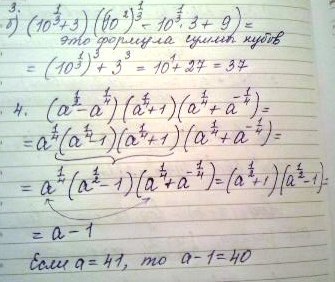 3.
б) (10^{1/3}+3)((10²)^{1/3} - 10^{1/3}·3 + 9) =
это формула суммы кубов
= (10^{1/3})³ + 3³ = 10¹ + 27 = 37
4. (a^{1/2} - a^{1/4})(a^{1/4}+1)(a^{1/4}+a^{-1/4}) =
= a^{1/4}(a^{1/4}-1)(a^{1/4}+1)(a^{1/4}+a^{-1/4}) =
= a^{1/4}(a^{1/2}-1)(a^{1/4}+a^{-1/4}) = (a^{1/2}+1)(a^{1/2}-1) =
= a - 1
Если a = 41, то a - 1 = 40